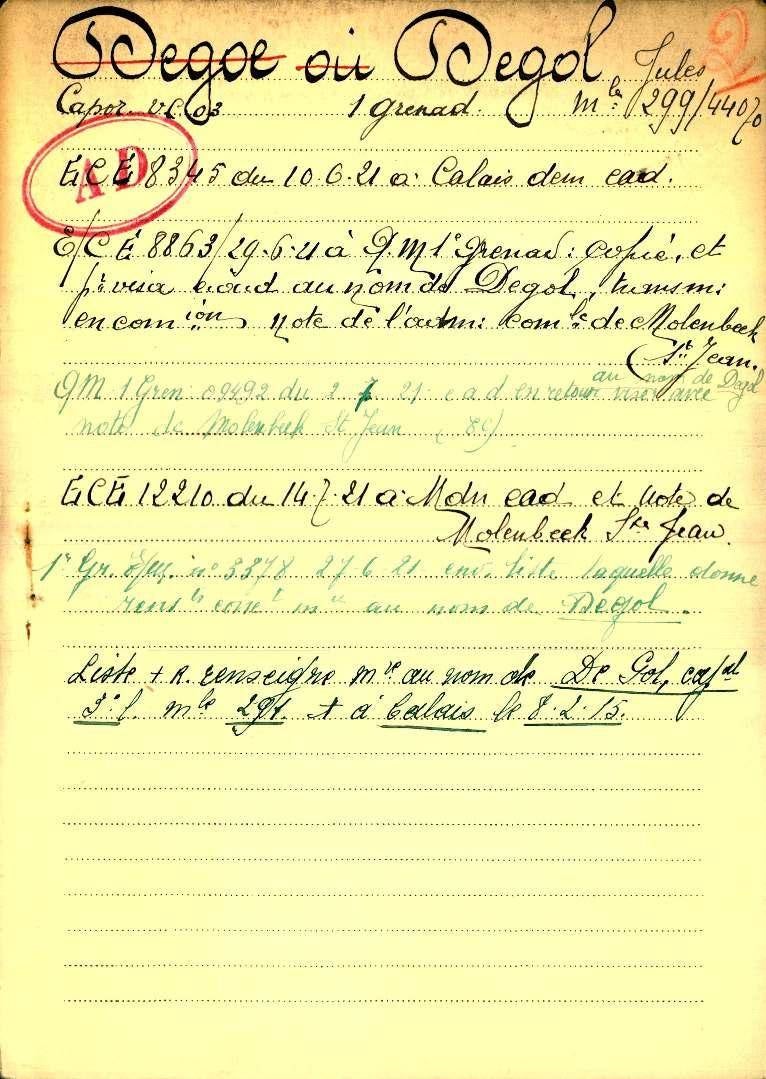 Degoe ou Degol Jules
Capor. VC 03 1 grenad. mle 299/44070
AD
ECE 8345 du 10.6.21 à Calais dem ead.
E/CE 8863/29-6-21 à Q.M 1e Grenad: copié, et
pr visa eàd au nom de Degol, transm:
en com ion note de l'adm: comle de Molenbeek
St Jean.
QM 1 Gren 09492 du 2 7 21 ead en retour visé avec
au nom de Degol
note de Molenbeek St Jean
ECE 12210 du 14.7.21 à Mdn ead et note de
Molenbeek Ste Jean.
1r Gr. n° 3378 27-6-21 env. liste laquelle donne
au nom de Degol.
Liste + R. renseigne au nom de De Gol, capal
mle 291. + à Calais le 8.2.15.